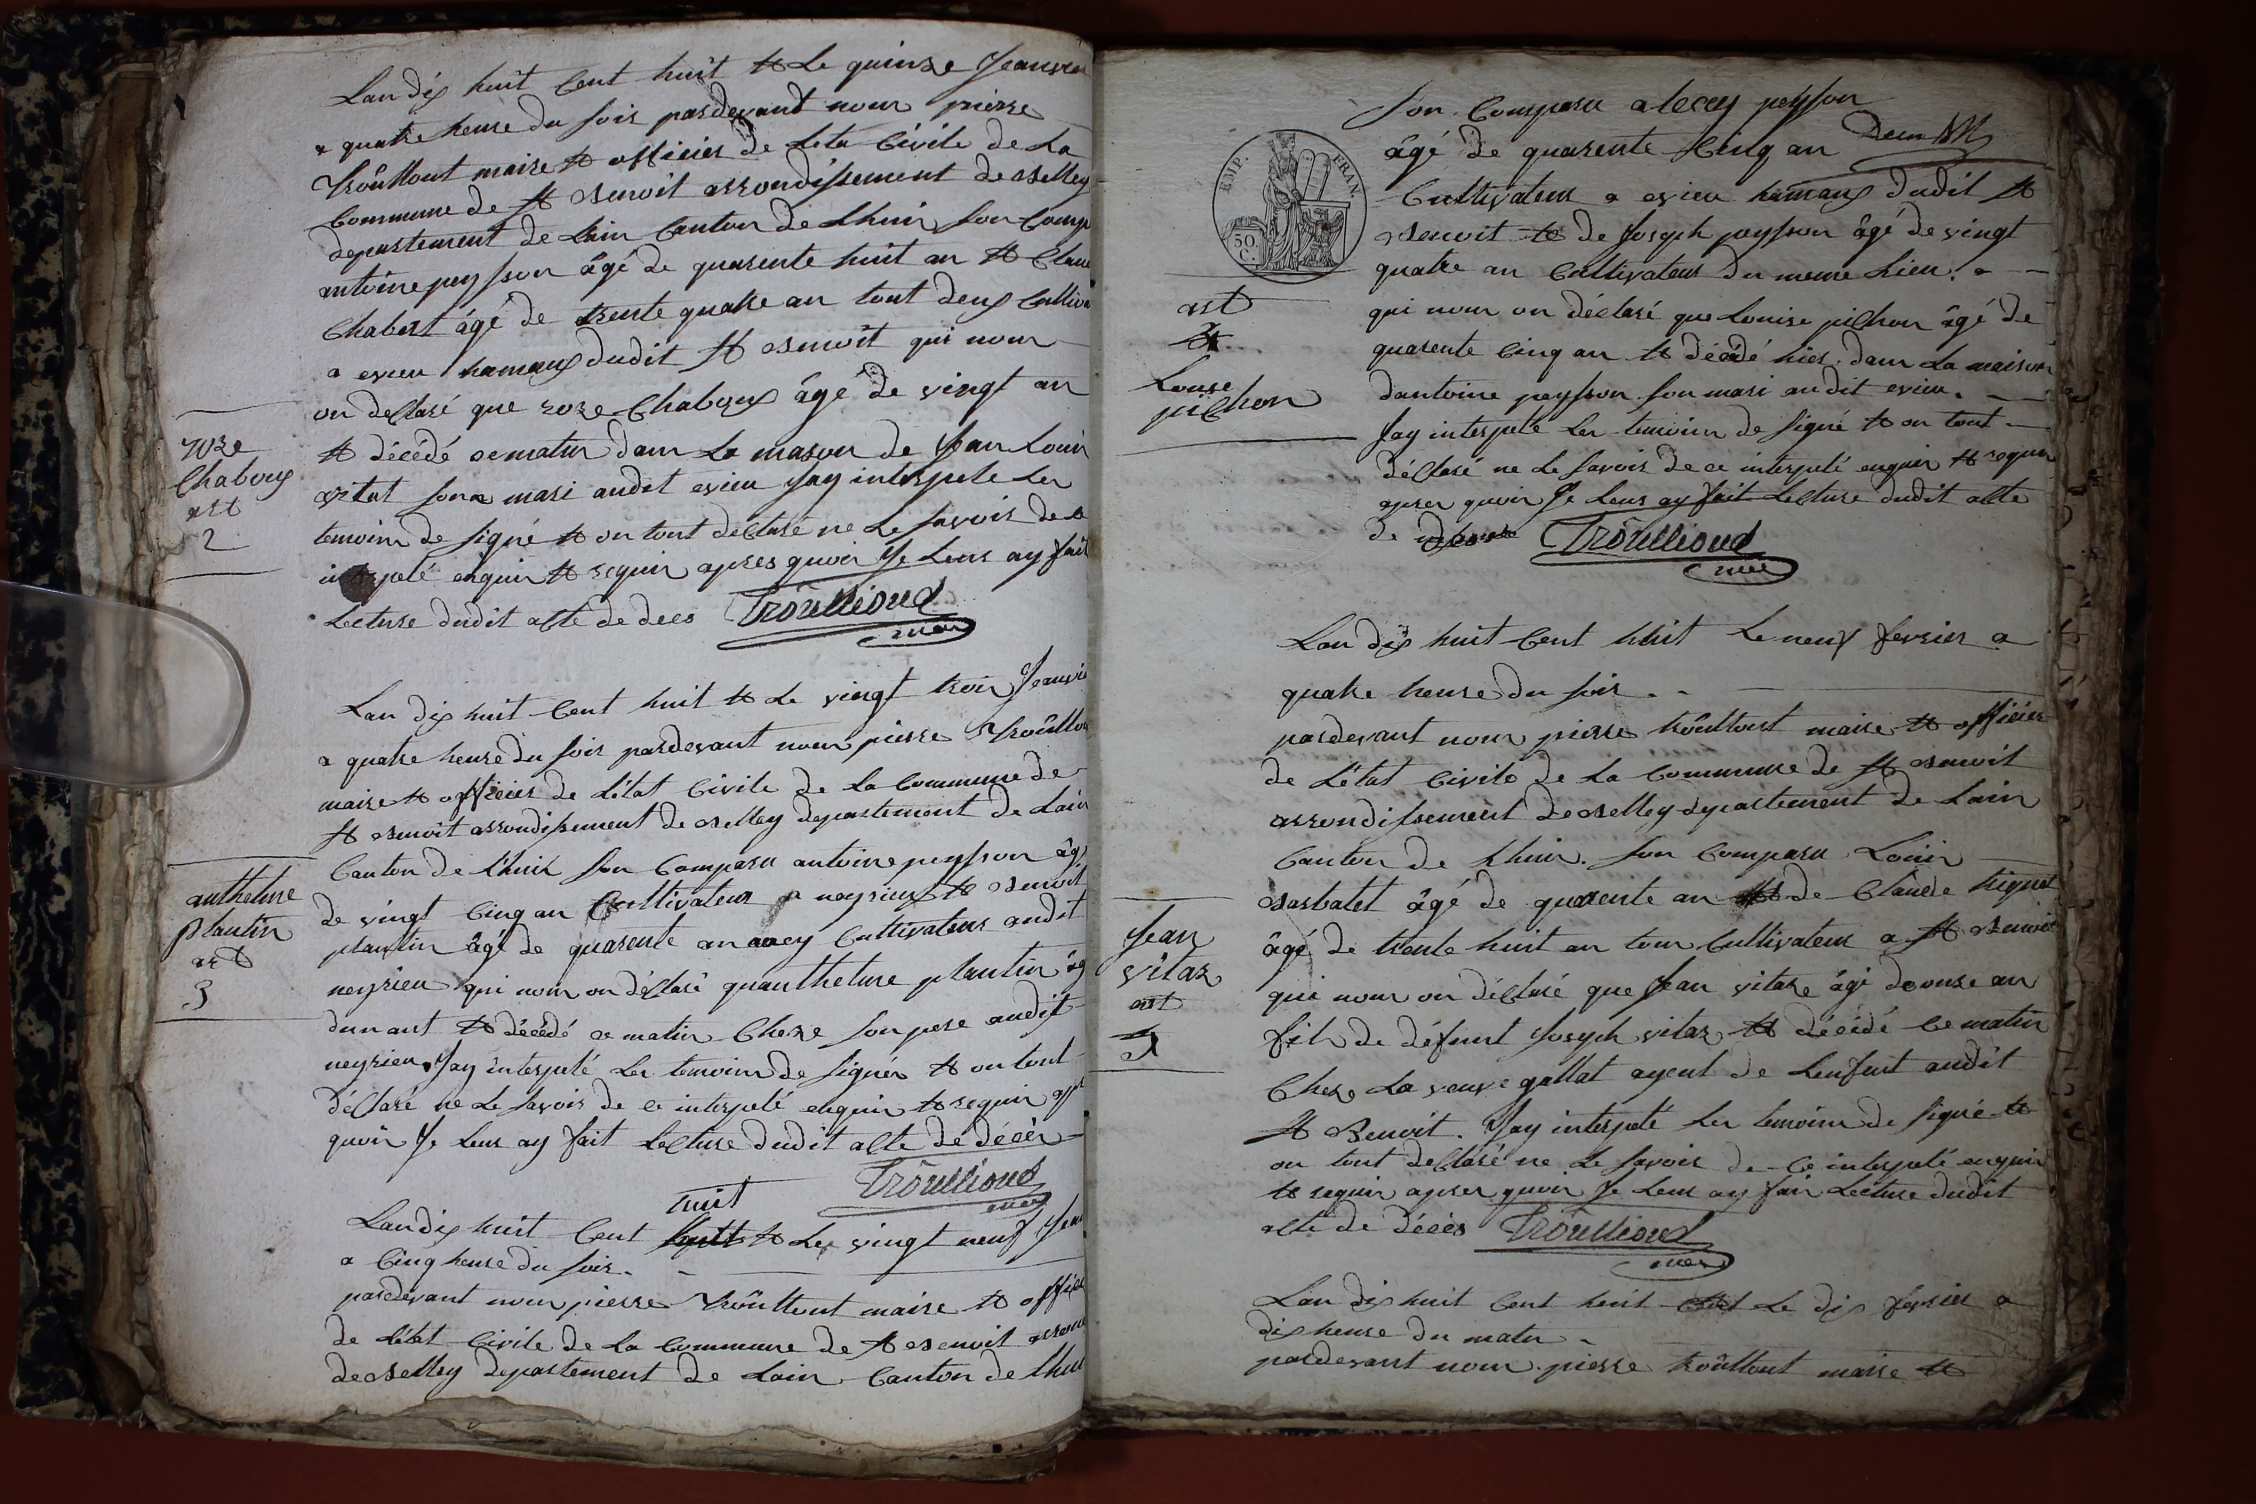 Lan dix huit Cent huit et Le quinze Jeanvier
a quatre heure du soir pardevant nous pierre
trôulliout maire et officier de Leta Civile de La
Commune de st Benoit arrondissement de Belley
departement de Lain Canton de Lhuis son Compa
antoine peysson âgé de quarente huit an et Claue
Chabert âgé de trente quatre an tout deux Cultiva
a evieu hamaux dudit st Benoit qui nous
on declaré que roze Chaboux âgé de vingt an
et décédé ce matin dans La mason de Jean Louis
vitat son mari audit evieu Jay interpelé Les
temoins de signé et on tout déclaré ne Le savoir de ce
interpelé enquis et requis apres quoi Je Leur ay fait
Lecture dudit acte de deces Trôullioud
maire
roze
Chaboux
art
2
Lan dix huit Cent huit et Le vingt trois Jeanvie
a quatre heure du soir pardevant nous pierre Trôulliou
maire et officier de Létat Civile de La Commune de
st Benoit arrondissement de Belley departement de Lain
Canton de Lhuis son Comparu antoine peysson âgé
de vingt Cinq an Cultivateur a neyrieux st Benoit
plantin âgé de quarente an aucy Cultivateur audit
neyrieu qui nous on déclaré quanthelme plantin âg
dun ant et décédé ce matin Cheze son pere audit
neyrieu. Jay interpelé Les temoins de signér et on tout
déclaré ne Le savoir de ce interpelé enquis et requis apr
quoi Je Leur ay fait Lecture dudit acte de décès
Trôullioud
maire
anthelme
plantin
art
3
huit
Lan dix huit Cent et Le vingt neuf Jean
a Cinq heure du soir.
pardevant nous pierre trôulliout maire et officie
de Létat Civile de La Commune de st Benoit arron
de Belley departement de Lain Canton de Lhui
son Comparu alecey peysson
âgé de quarente Cinq an
Cultivateur a evieu hamaux dudit st
Benoit et de Joseph peysson âgé de vingt
quatre an Cultivateur du meme Lieu.
qui nous on déclaré que Louise pichon âgé de
quarente Cinq an et décédé hier dans La maison
dantoine peysson son mari audit evieu.
Jay interpelé Les temoins de signé et on tout
déclaré ne Le savoir de ce interpelé enquis et requis
apres quoi Je Leur ay fait Lecture dudit acte
de Trôullioud
maire
EMP. FRAN.
50
C.
art
4
Louise
pichon
Lan dix huit Cent huit Le neuf fevrier a
quatre heure du soir.
pardevant nous pierre trôulliout maire et officier
de Létat Civile de La Commune de st Benoit
arrondissement de Belley departement de Lain
Canton de Lhuis. son Comparu Louis
Barbatet âgé de quarente an et de Claude
âgé de trente huit an tous Cultivateur a st Benoit
qui nous on déclaré que Jean vitaz âgé de onze an
fils de défunt Joseph vitaz et décédé Ce matin
Cheze La veuve gallat ayent de Lenfent audit
st Benoit. Jay interpelé Les temoins de signé et
on tout declaré ne Le savoir de Ce interpelé enquis
et requis apres quoi Je Leur ay fair Lecture dudit
acte de décès Trôullioud
maire
Jean
vitaz
art
5
Lan dix huit Cent huit et Le dix fevrier a
dix heure du matin
pardevant nous pierre trôulliout maire et